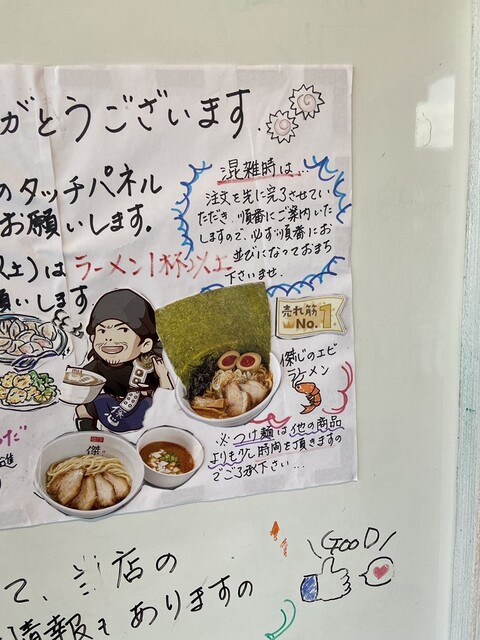 がとうございます
混雑時は...
注文を先に完了させてい
ただき、順番にご案内いた
しますので、必ず順番にお
並びになっておまち
下さいませ.
のタッチパネル
お願いします.
以上)は ラーメン1杯以上
願いします
売れ筋
No.1
傑心のエビ
ラーメン
傑
※つけ麺は他の商品
よりも少し時間を頂きますの
でご了承下さい...
て、当店の
情報もありますの
\GOOD/